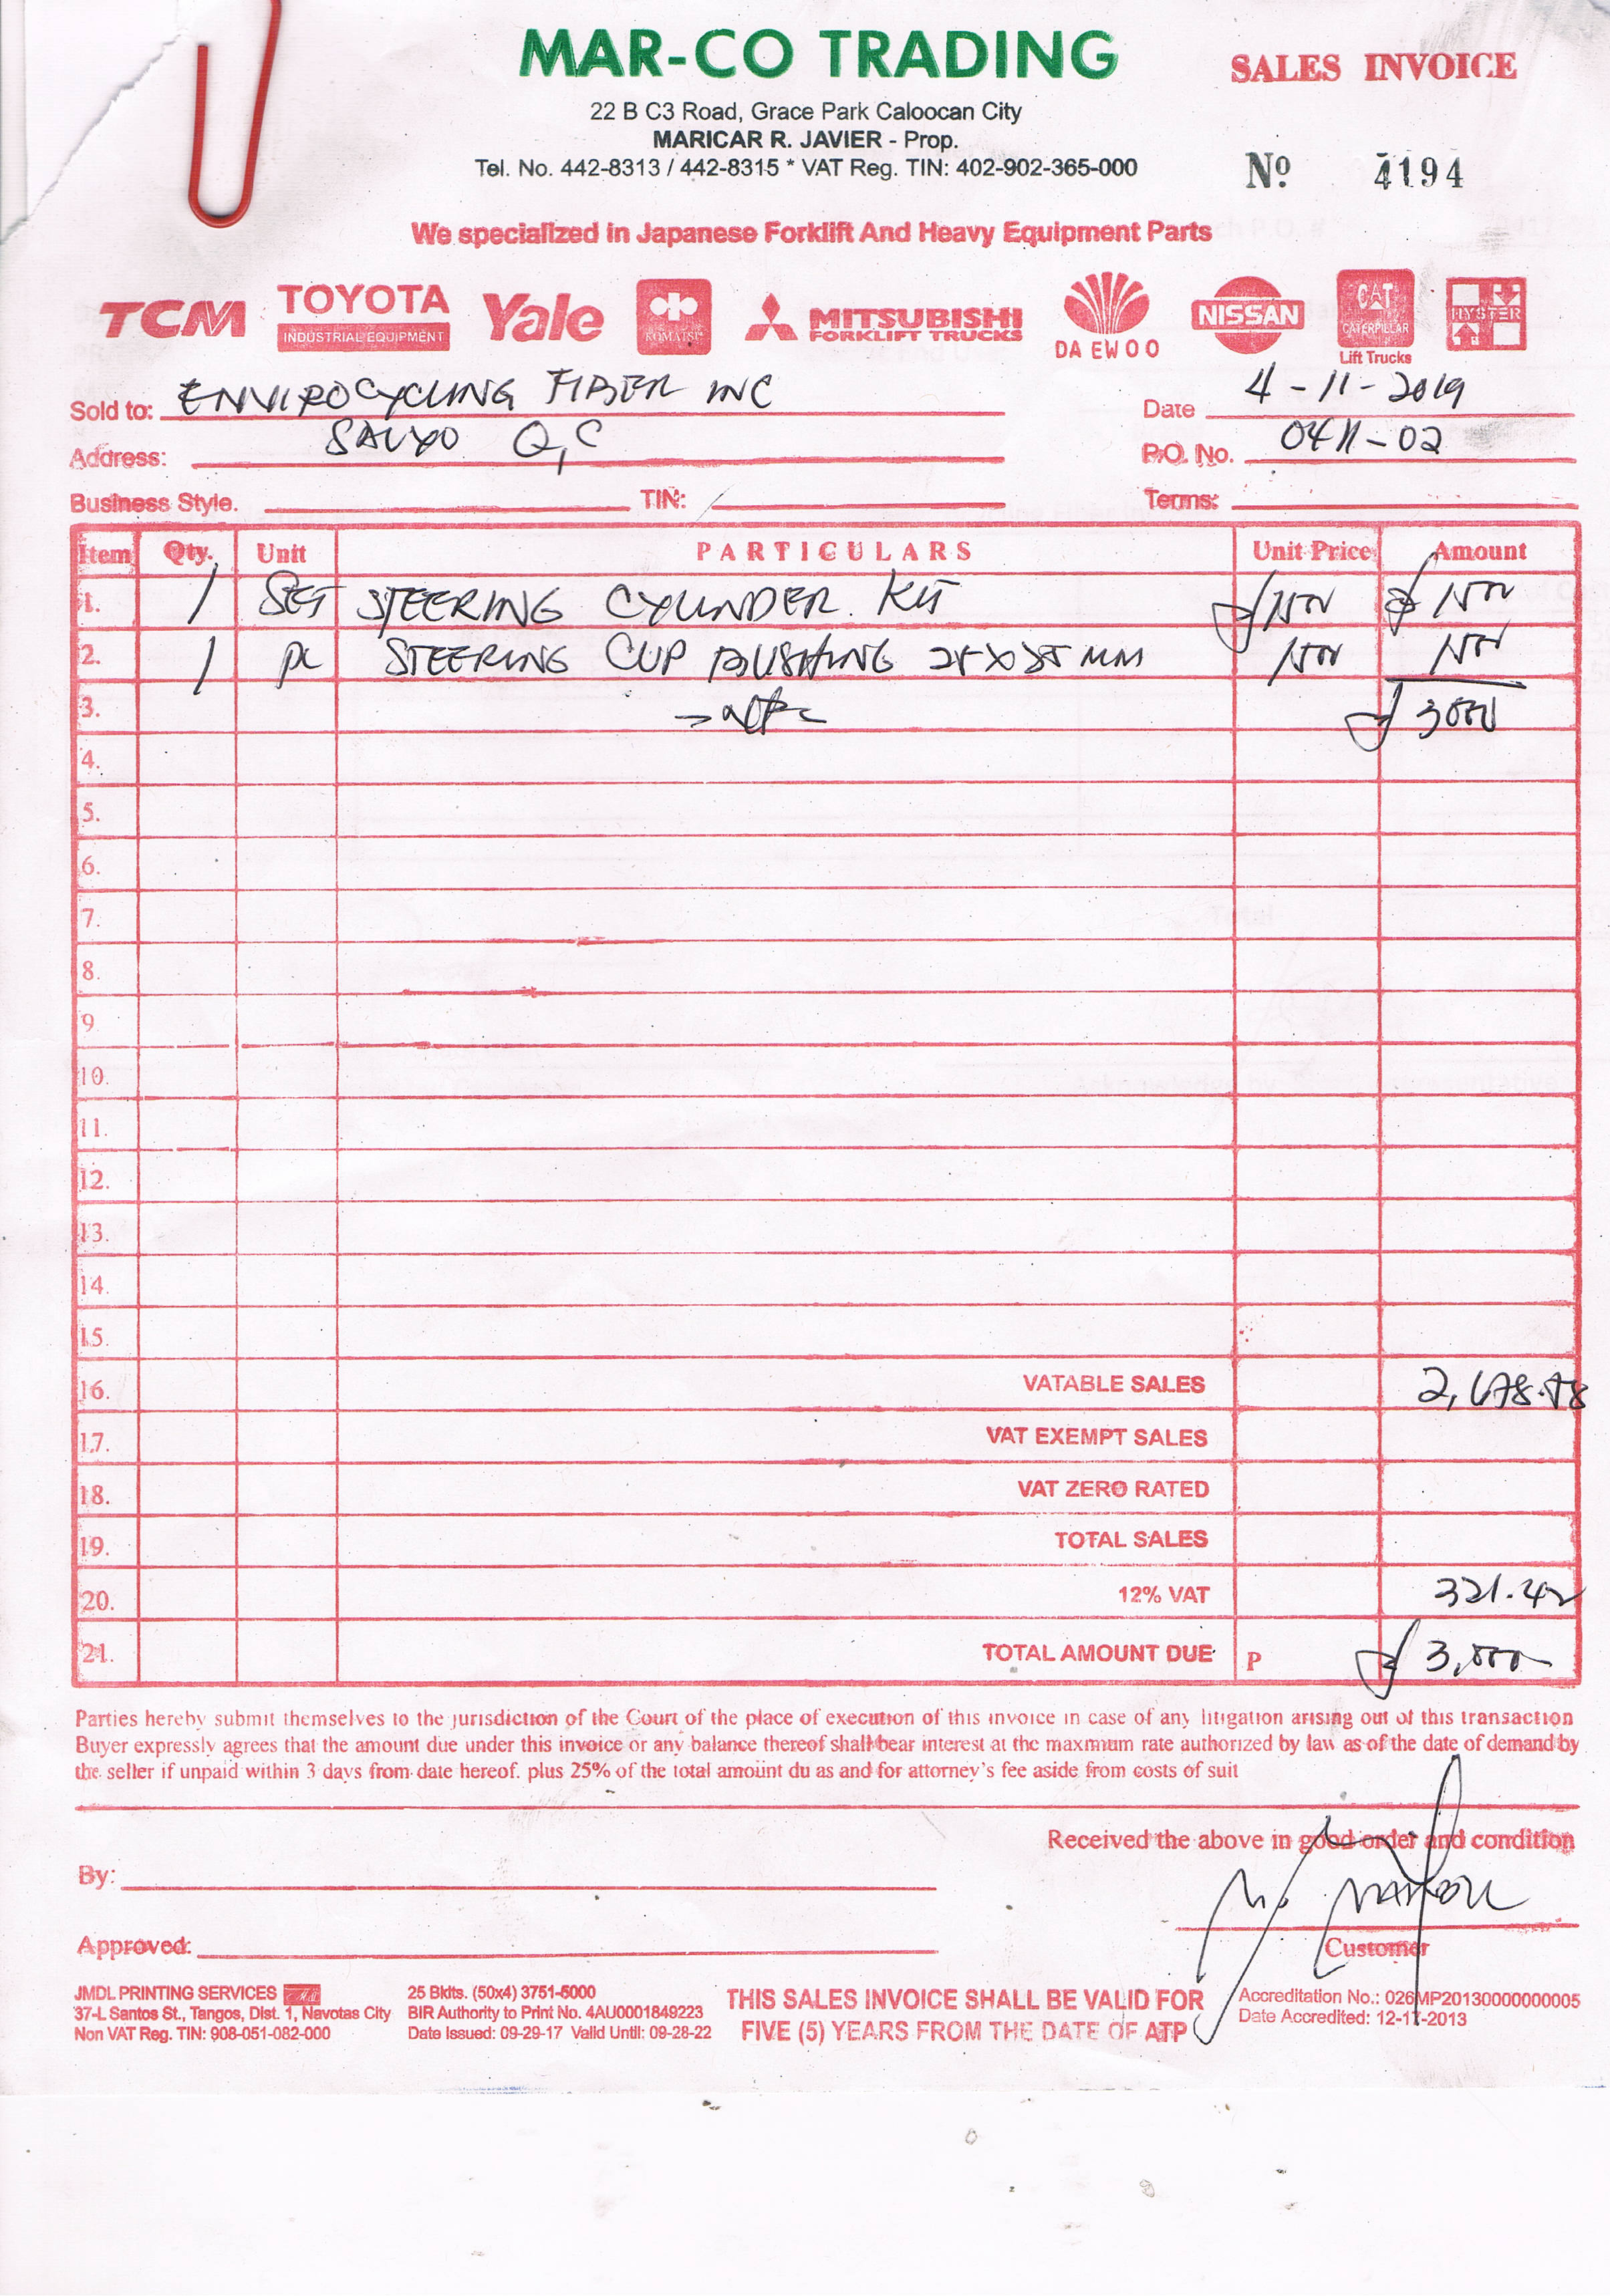 MAR-CO TRADING
SALES INVOICE
22 B C3 Road, Grace Park Caloocan City
MARICAR R. JAVIER - Prop.
Tel. No. 442-8313 / 442-8315 * VAT Reg. TIN: 402-902-365-000
Nº 4194
We specialized in Japanese Forklift And Heavy Equipment Parts
TCM TOYOTA INDUSTRIAL EQUIPMENT Yale KOMATSU MITSUBISHI FORKLIFT TRUCKS DAEWOO NISSAN CAT CATERPILLAR Lift Trucks HYSTER
Sold to: ENVIROCYCLING FIBER INC Date 4-11-2019
Address: SAUYO Q,C P.O. No. 0411-02
Business Style. TIN: Terms:
Item Qty. Unit PARTICULARS Unit Price Amount
1. 1 SET STEERING CYLINDER KIT 1500 1500
2. 1 pc STEERING CUP BUSHING MM 1500 1500
3. 3000
4.
5.
6.
7.
8.
9
10.
11.
12.
13.
14.
15.
16. VATABLE SALES 2,678.58
17. VAT EXEMPT SALES
18. VAT ZERO RATED
19. TOTAL SALES
20. 12% VAT 321.42
21. TOTAL AMOUNT DUE P 3,000
Parties hereby submit themselves to the jurisdiction of the Court of the place of execution of this invoice in case of any litigation arising out of this transaction
Buyer expressly agrees that the amount due under this invoice or any balance thereof shall bear interest at the maximum rate authorized by law as of the date of demand by
the seller if unpaid within 3 days from date hereof. plus 25% of the total amount du as and for attorney's fee aside from costs of suit
Received the above in good order and condition
By:
Approved:
Customer
JMDL PRINTING SERVICES
37-L Santos St., Tangos, Dist. 1, Navotas City
Non VAT Reg. TIN: 908-051-082-000
25 Bklts. (50x4) 3751-5000
BIR Authority to Print No. 4AU0001849223
Date Issued: 09-29-17 Valid Until: 09-28-22
THIS SALES INVOICE SHALL BE VALID FOR
FIVE (5) YEARS FROM THE DATE OF ATP
Accreditation No.: 026MP20130000000005
Date Accredited: 12-17-2013